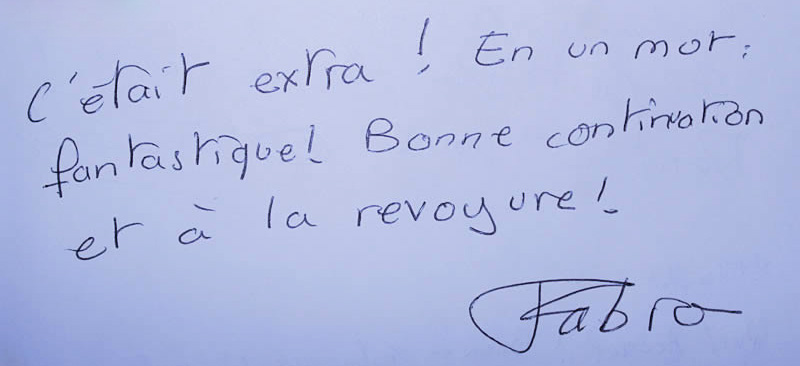 C'était extra ! En un mot :
fantastique ! Bonne continuation
et à la revoyure !
Fabro